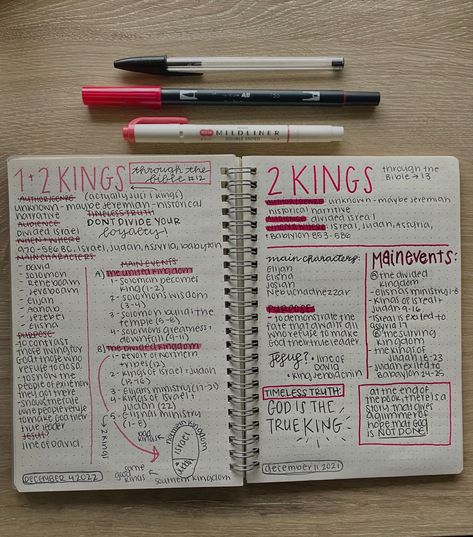 AB
MILDLINER
DOUBLE ENDED
1+2 KINGS
through the
bible #12
AUTHOR/GENRE (actually just 1 kings)
unknown-maybe jeremiah-historical
narrative
TIMELESS TRUTH:
AUDIENCE:
DONT DIVIDE YOUR
loyalty!
divided israel
WHEN+WHERE
970-586 BC, israel, judah, assyria, babylon
MAIN CHARACTERS:
- david
- solomon
- rehoboam
- jeroboam
- elijah
- ahab
- jezebel
- elisha
PURPOSE
- to contrast
those living for
God + those who
refuse to do so.
people of exile how
they got there
way people refuse
to make god their
true leader
JESUS?
line of david
MAIN EVENTS
A) the united kingdom
1- solomon becomes
king (1-2)
2- solomon's wisdom
(3-4)
3- solomon builds the
temple (5-8)
4- solomons greatness+
downfall (9-11)
B) the divided kingdom
1- revolt of northern
tribes (12)
2- kings of israel + judah
3- elijah ministry (17-21)
4- kings of israel +
judah (22)
5- elijah ministry
2 kings
bad
kings
some
good
kings
northern kingdom
israel
southern kingdom
DECEMBER 4 2022
2 KINGS
through the
bible → 13
unknown-maybe jeremiah
historical narrative
divided israel
israel, judah, assyria,
+ babylon 853-586
main characters:
elijah
elisha
josiah
nebuchadnezzar
PURPOSE
demonstrate the
fate that awaits all
who refuse to make
God their true leader.
Jesus? • line of
david +
jehoiachin
TIMELESS TRUTH:
GOD IS THE
TRUE KING
december 11 2021
Main events:
the divided
kingdom
- elishas ministry 1-8
- kings of israel +
judah 9-16
- israel is exiled to
assyria 17
the surviving
kingdom
- the kings
of judah 18-23
- judah exiled to
babylon 24-25
at the end of
the book, there is a
story that gives
a glimmer of
hope that God
is NOT DONE!